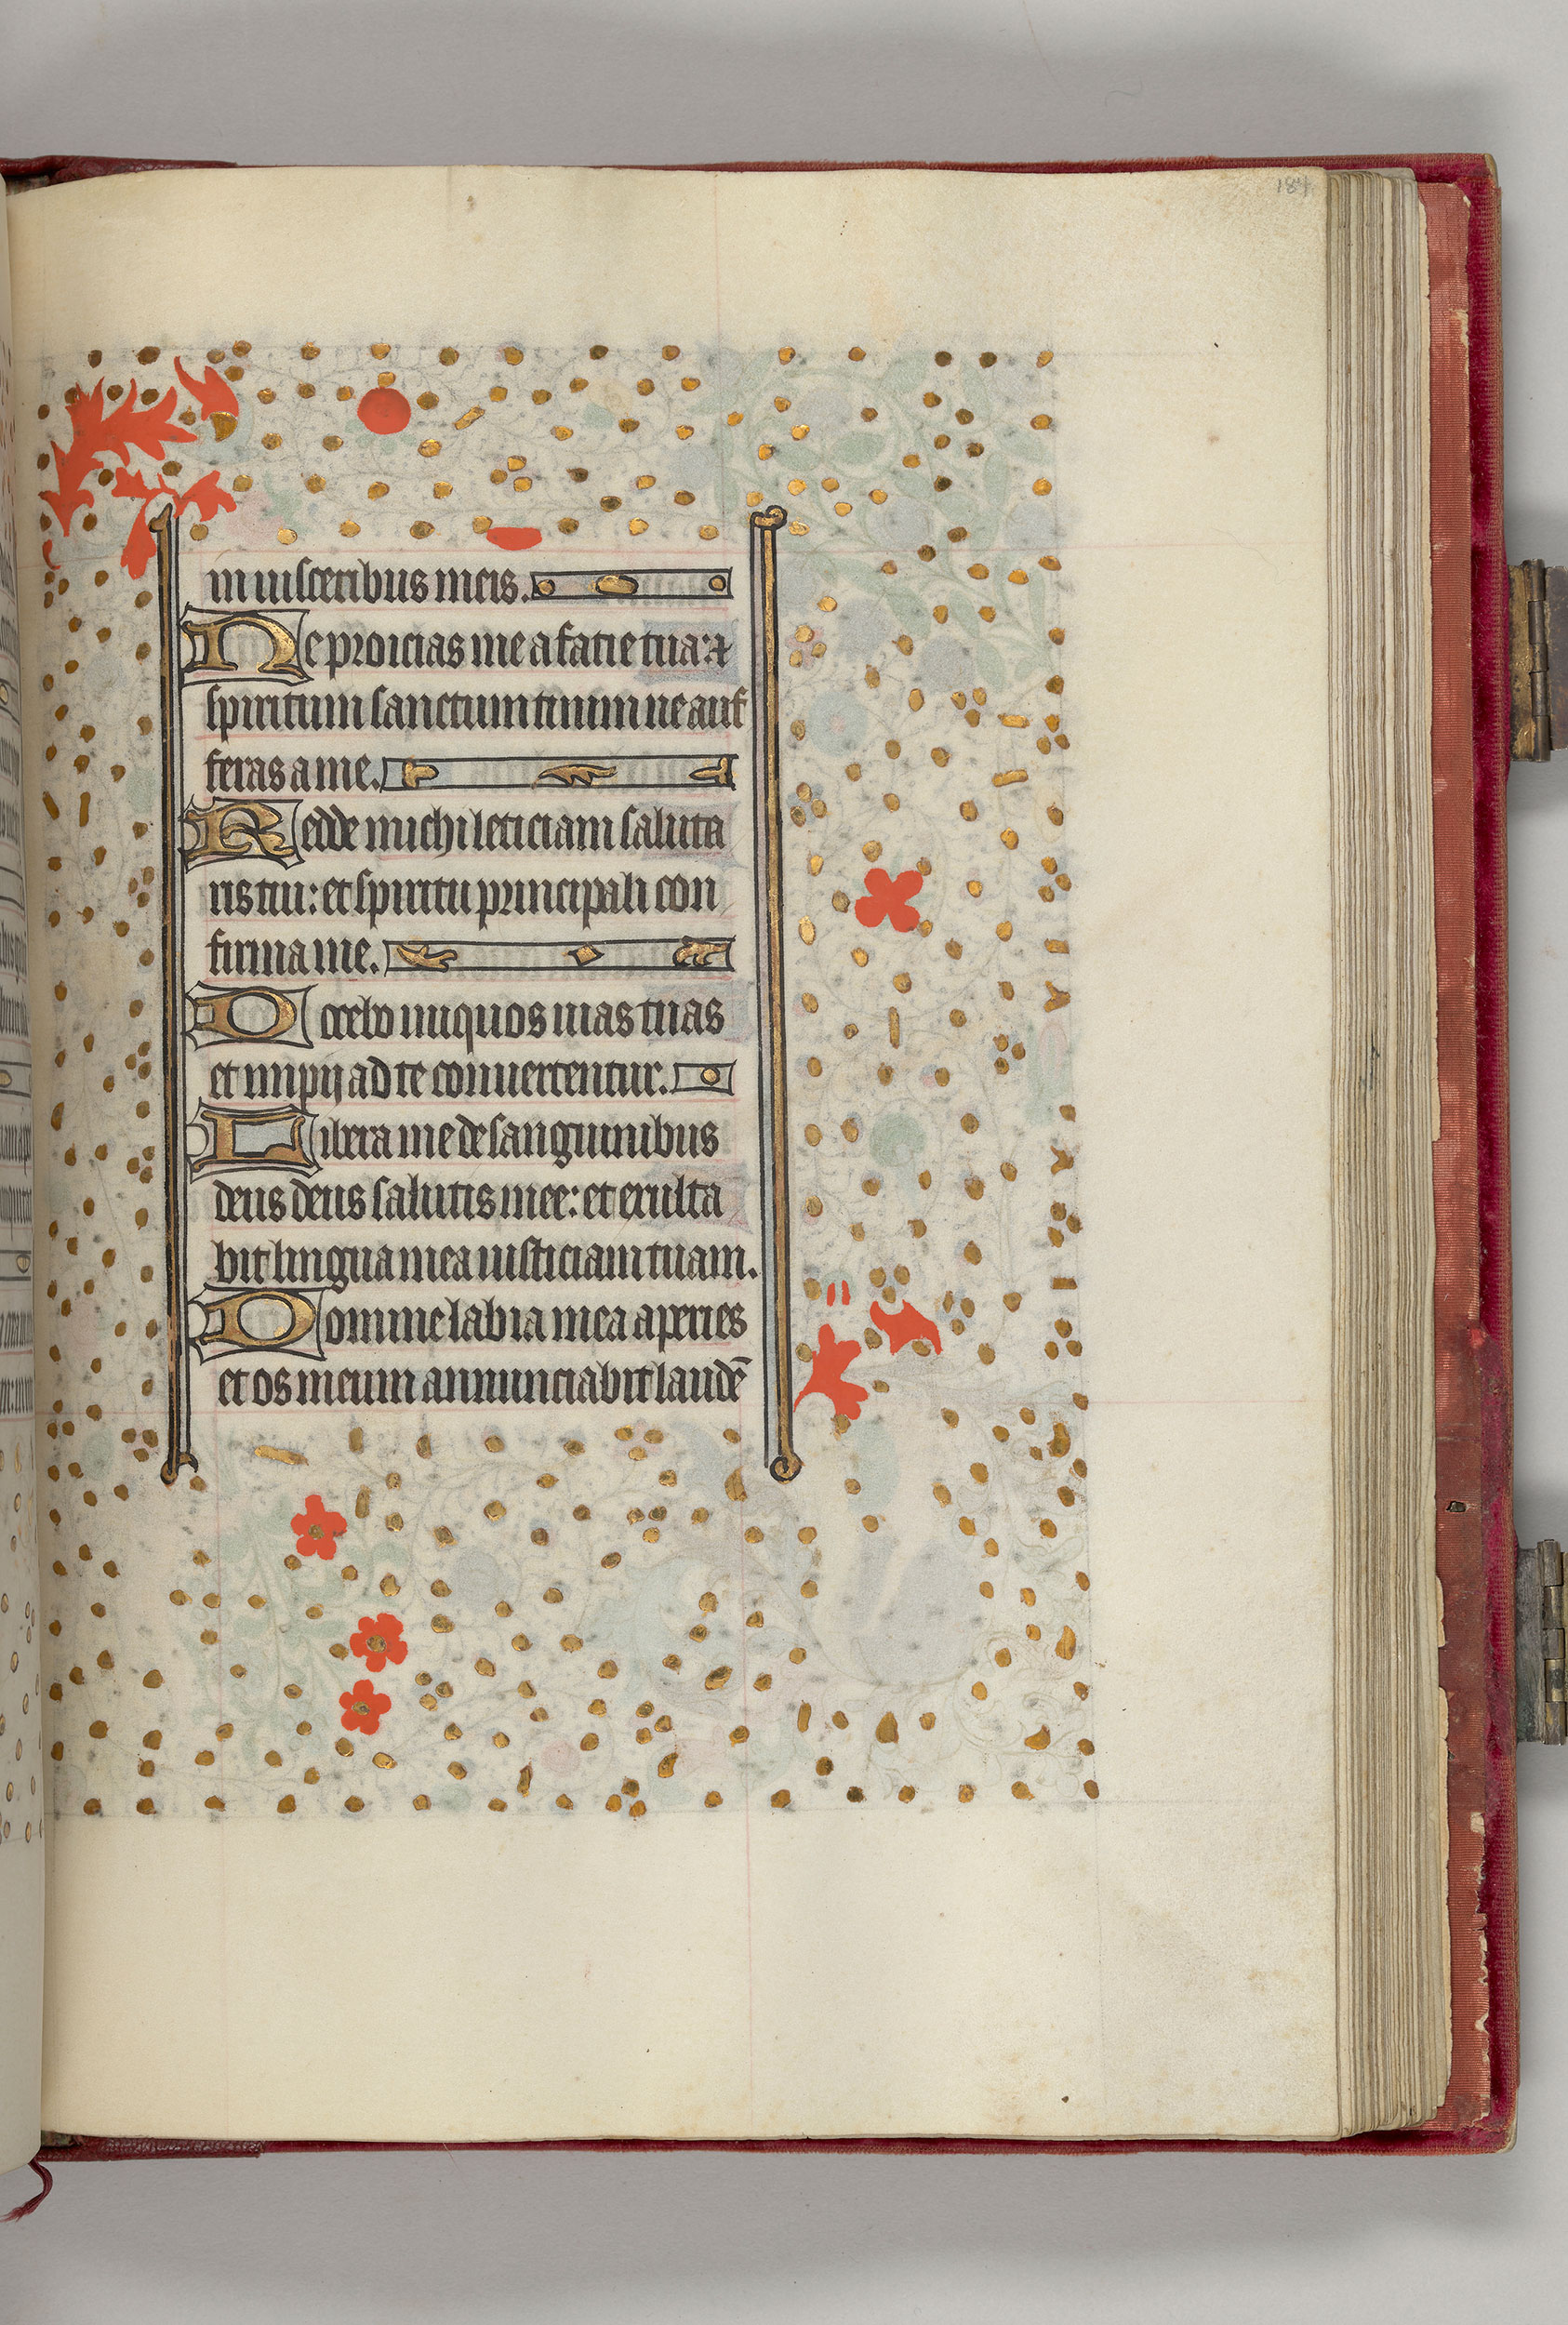 184
in uisceribus meis.
Ne proicias me a facie tua: et
spiritum sanctum tuum ne auf
feras a me.
Redde michi leticiam saluta
ris tui: et spiritu principali con
firma me.
Docebo iniquos uias tuas
et impij ad te conuertentur.
Libera me de sanguinibus
deus deus salutis mee: et exulta
bit lingua mea iusticiam tuam.
Domine labia mea aperies
et os meum annunciabit laudē